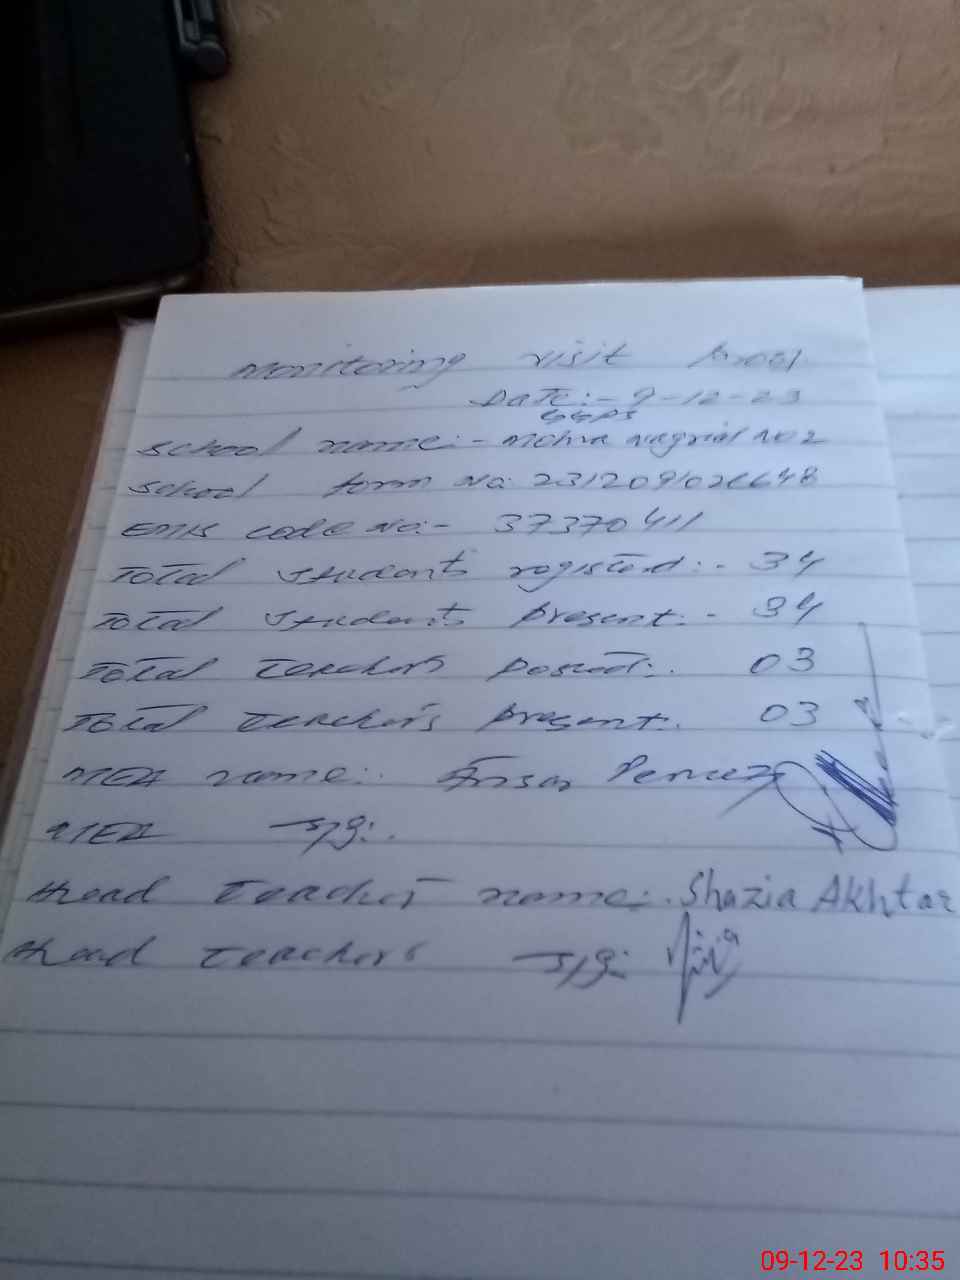 Monitoring visit Proof
Date:- 9-12-23
GGPS
School name:- Mohra Nagrial No 2
School form No: 231209102
EMIS code No:- 37370411
Total students registerd:- 34
Total students present:- 34
Total teachers posted:. 03
Total teachers present:. 03
MEA name:. Ansar Pervez
MEA sig:.
Head teacher name:. Shazia Akhtar
Head teachers sig:
09-12-23 10:35